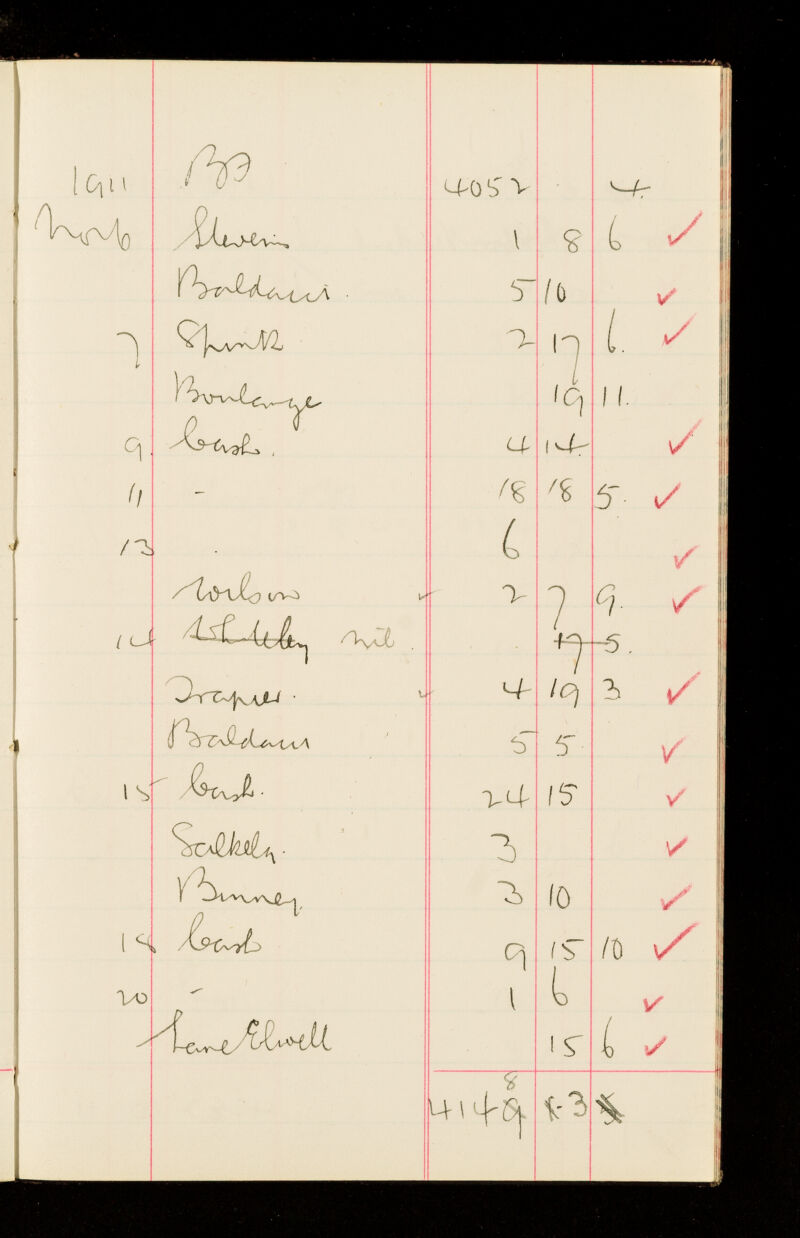 1911 BF 4052 4.
Nov 6 Stevens 1 8 6 ✓
Baldwin. 5 10 ✓
7 Spink 2 17 6. ✓
Boulange 19 11.
9. Cash. 4 14. ✓
11 - 18 18 5. ✓
13 . 6 ✓
Wilson ✓ 2 7 9. ✓
14 Whiteley nil. 17 5.
Drapier. ✓ 4 19 3 ✓
Baldwin 5 5. ✓
15 Cash. 24 15 ✓
3 ✓
Binney. 3 10 ✓
18 Cash 9 15 10 ✓
20 - 1 6 ✓
Lane Elwell 15 6 ✓
8
4149 3